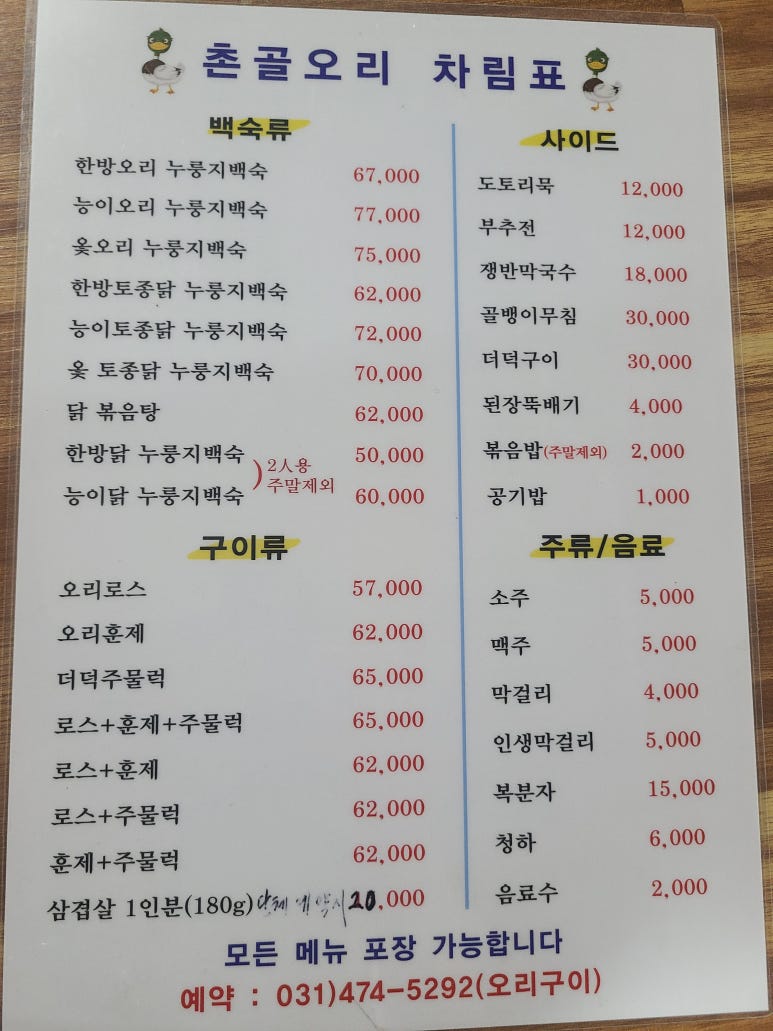 촌골오리 차림표
백숙류
한방오리 누룽지백숙 67,000
능이오리 누룽지백숙 77,000
옻오리 누룽지백숙 75,000
한방토종닭 누룽지백숙 62,000
능이토종닭 누룽지백숙 72,000
옻 토종닭 누룽지백숙 70,000
닭 볶음탕 62,000
한방닭 누룽지백숙 50,000
능이닭 누룽지백숙 60,000
)2人용
주말제외
구이류
오리로스 57,000
오리훈제 62,000
더덕주물럭 65,000
로스+훈제+주물럭 65,000
로스+훈제 62,000
로스+주물럭 62,000
훈제+주물럭 62,000
삼겹살 1인분(180g) 단체 예약시 20,000
사이드
도토리묵 12,000
부추전 12,000
쟁반막국수 18,000
골뱅이무침 30,000
더덕구이 30,000
된장뚝배기 4,000
볶음밥(주말제외) 2,000
공기밥 1,000
주류/음료
소주 5,000
맥주 5,000
막걸리 4,000
인생막걸리 5,000
복분자 15,000
청하 6,000
음료수 2,000
모든 메뉴 포장 가능합니다
예약 : 031)474-5292(오리구이)